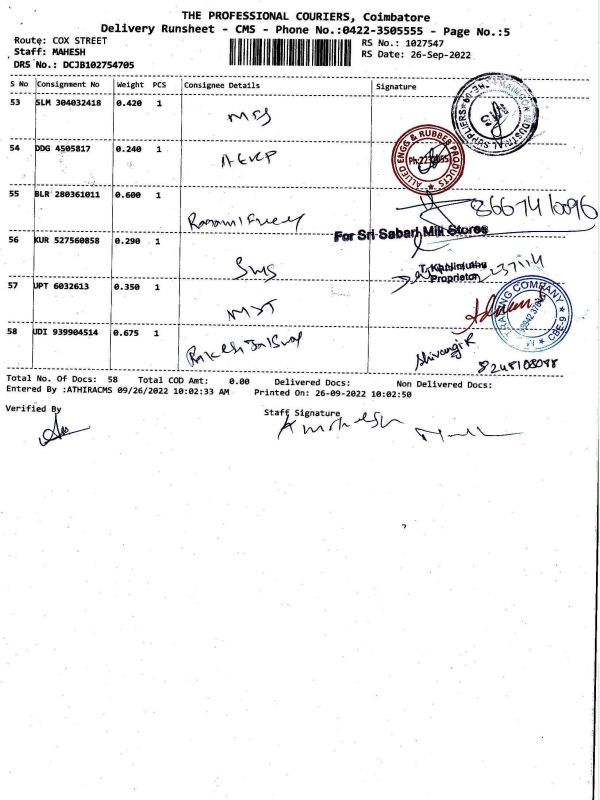 THE PROFESSIONAL COURIERS, Coimbatore
Delivery Runsheet - CMS - Phone No.:0422-3505555 - Page No.:5
Route: COX STREET
RS No.: 1027547
Staff: MAHESH
RS Date: 26-Sep-2022
DRS No.: DCJB102754705
S No Consignment No Weight PCS Consignee Details Signature
53 SLM 304032418 0.420 1
INDUSTRIAL SUPPLIERS
54 DDG 4505817 0.240 1 AEVCP
ALLIED ENGG & RUBBER PRODUCTS
55 BLR 280361011 0.600 1
8667410096
For Sri Sabari Milk Stores
56 KUR 527560858 0.290 1 SMS
Proprietor
57 UPT 6032613 0.350 1
TRADING COMPANY CBE-9
58 UDI 939904514 0.675 1
Shivangi R
8248108098
Total No. Of Docs: 58 Total COD Amt: 0.00 Delivered Docs: Non Delivered Docs:
Entered By :ATHIRACMS 09/26/2022 10:02:33 AM Printed On: 26-09-2022 10:02:50
Verified By Staff Signature